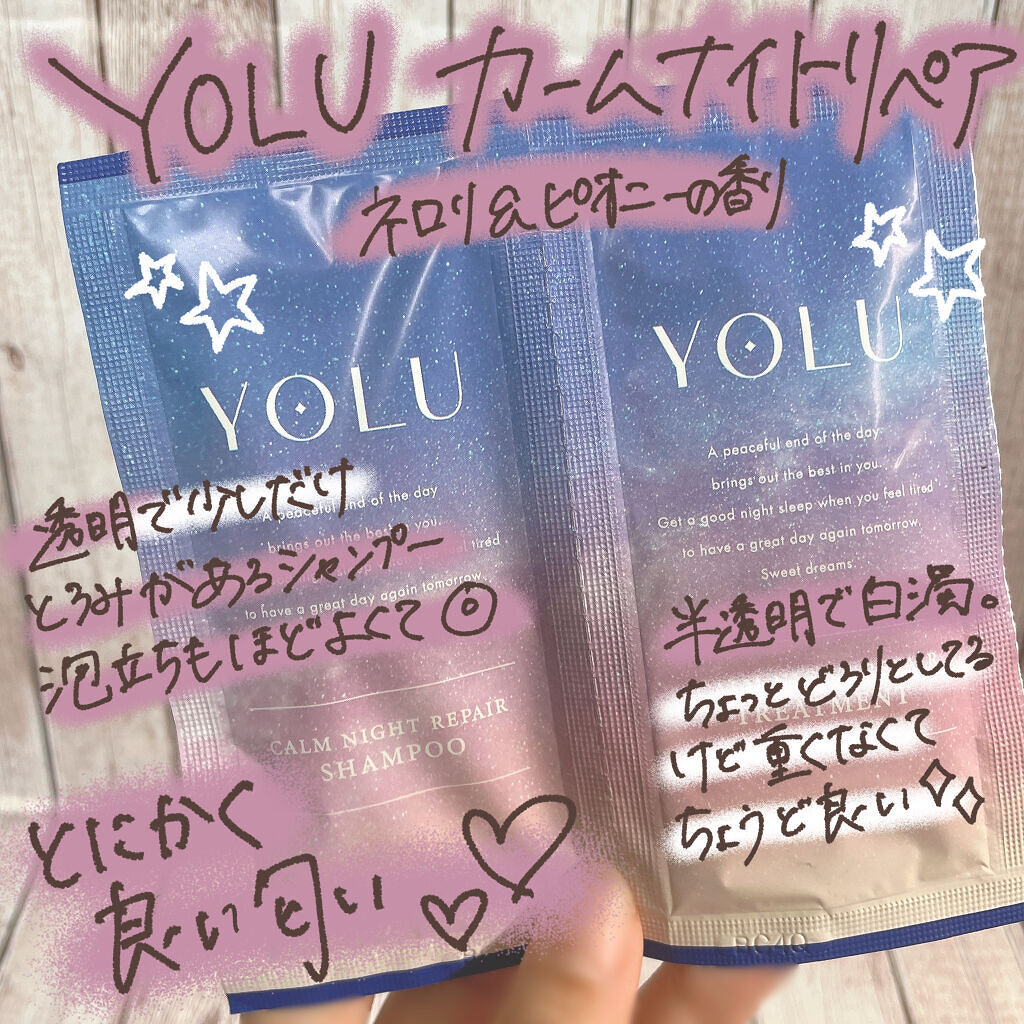 YOLU カームナイトリペア
ネロリ&ピオニーの香り
YOLU
A peaceful end of the day
brings out the best in you.
tired
to have a great day again tomorrow.
透明で少しだけ
とろみがあるシャンプー
泡立ちもほどよくて◎
CALM NIGHT REPAIR
SHAMPOO
とにかく
良い匂い♡♡
YOLU
A peaceful end of the day
brings out the best in you.
Get a good night sleep when you feel tired
to have a great day again tomorrow.
Sweet dreams
半透明で白濁。
ちょっとどろりとしてる
けど重くなくて
ちょうど良い
TREATMENT